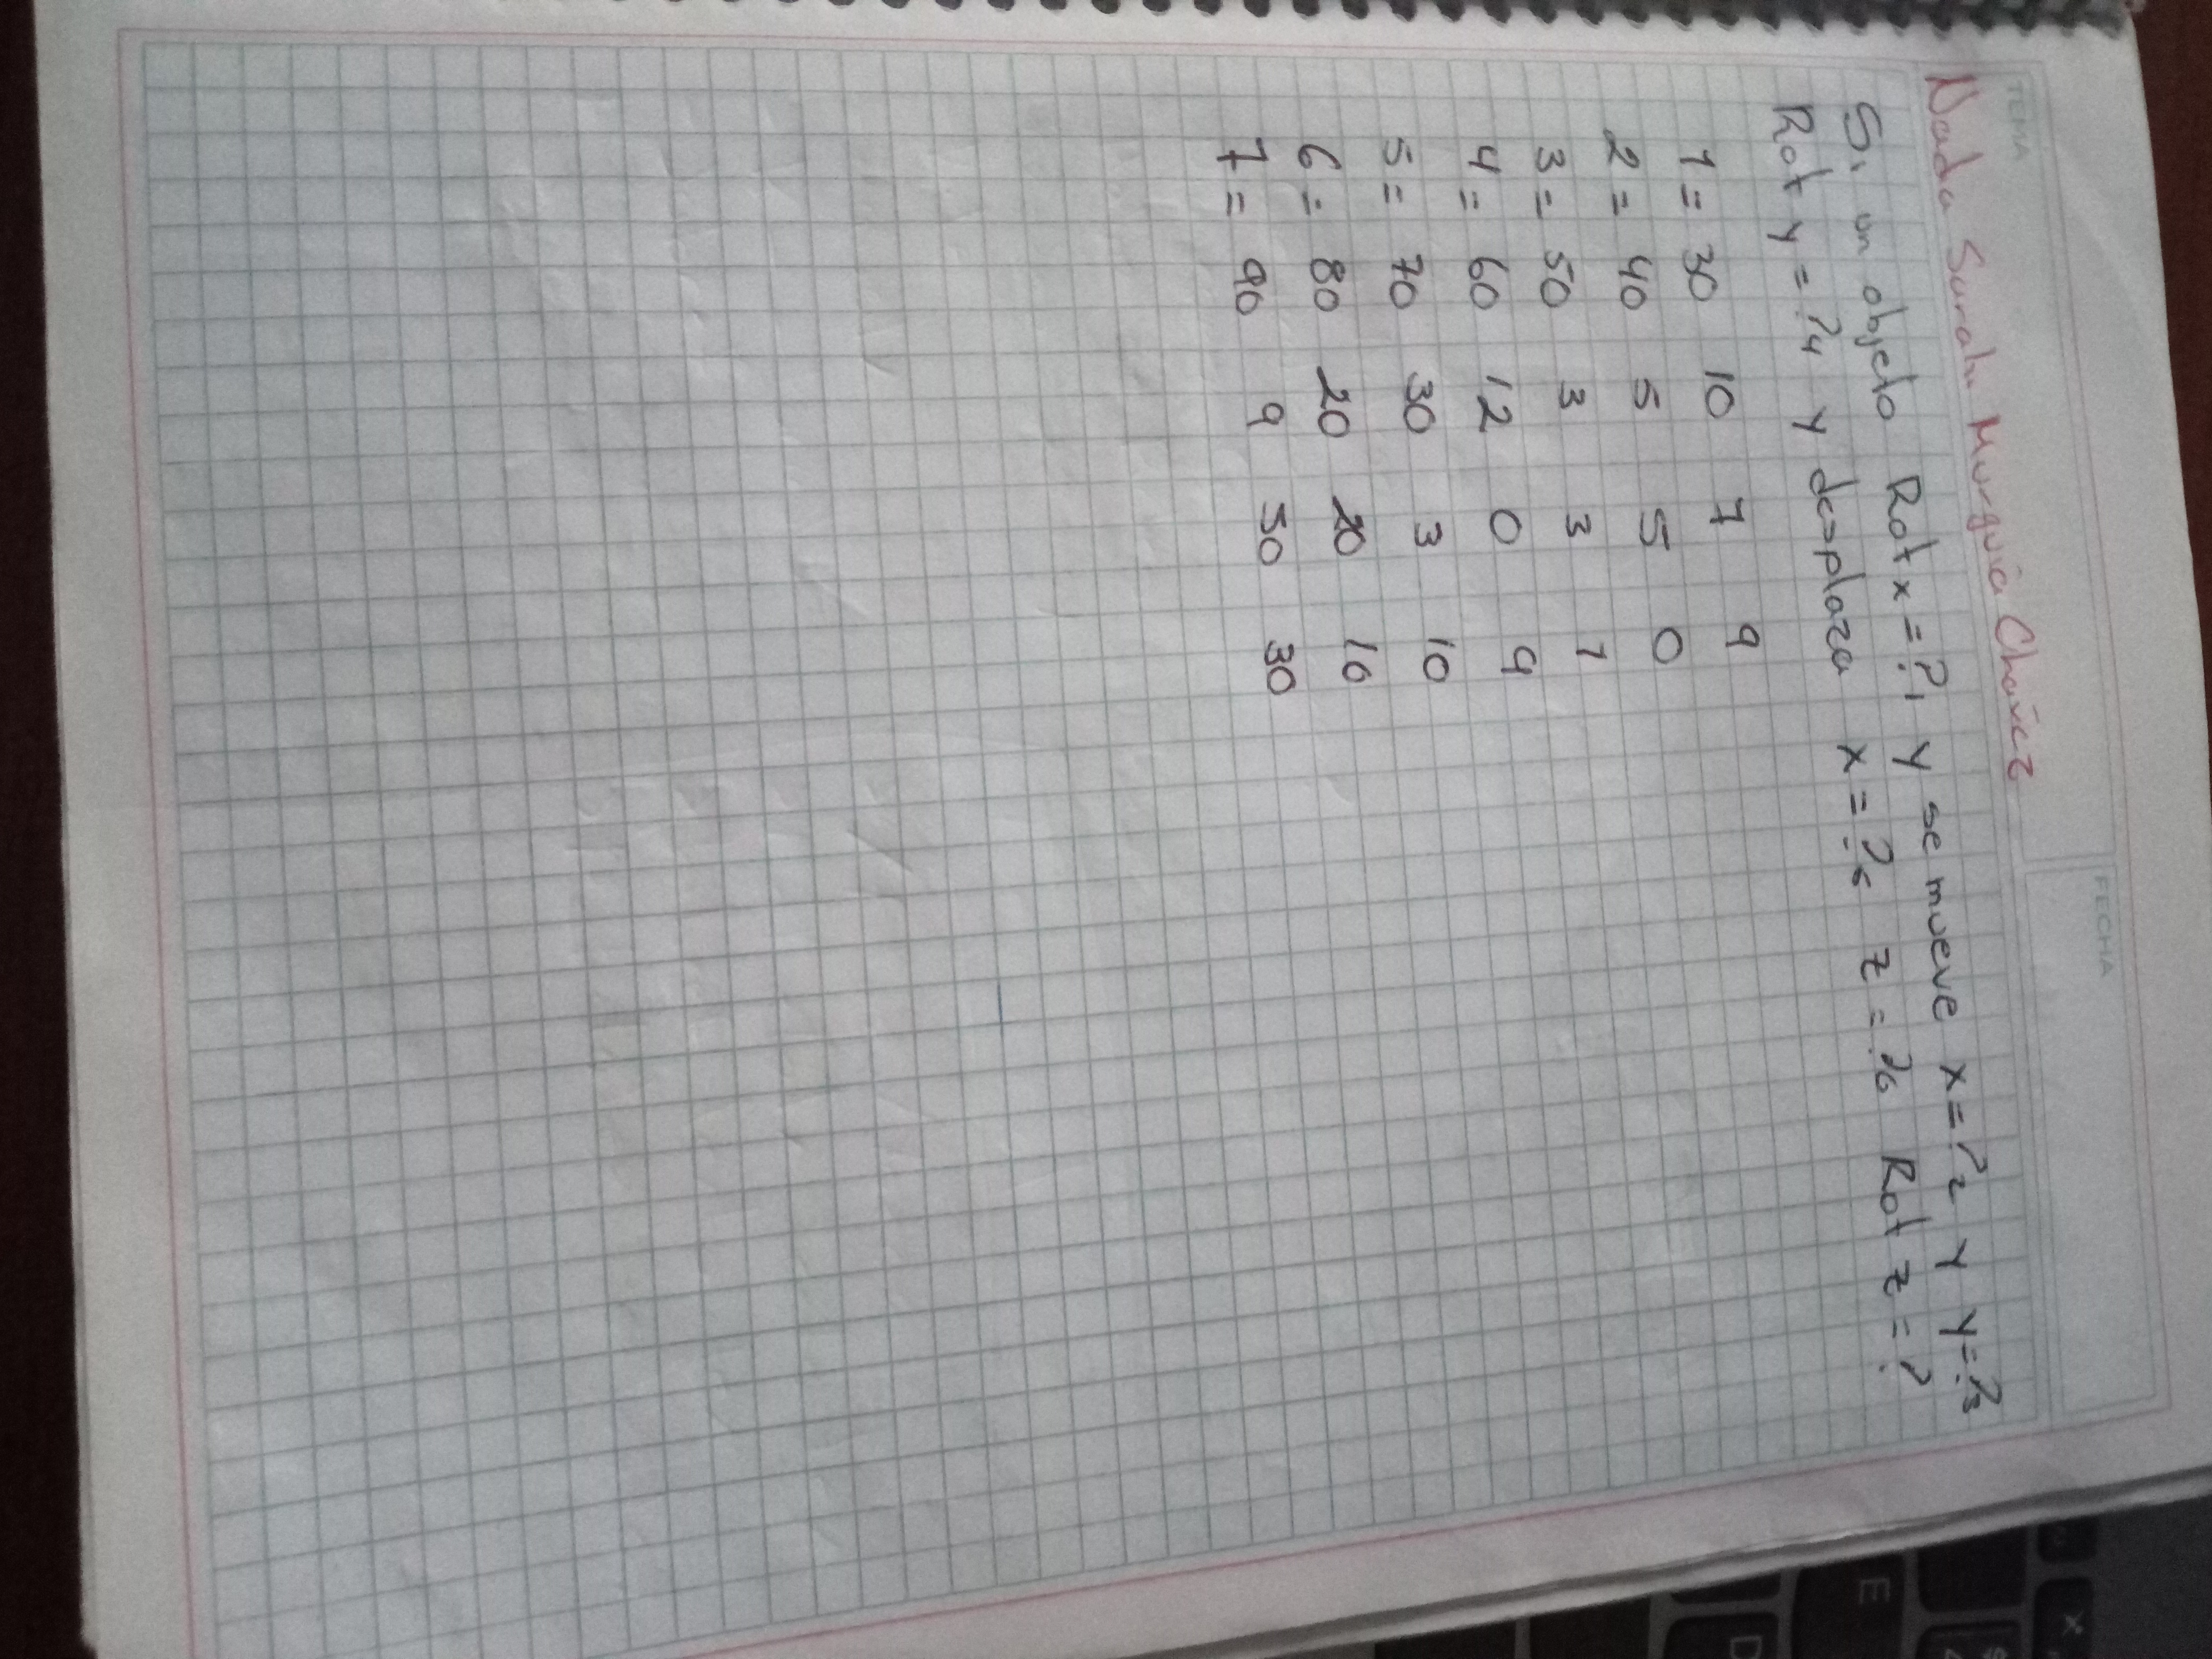 TEMA
FECHA
Murguía Chavéz
Si un objeto Rot x = ?1 y se mueve x = ?2 y y = ?3
Rot y = ?4 y desplaza x = ?5 z = ?6 Rot z = ?
1 = 30 10 7 9
2 = 40 5 5 0
3 = 50 3 3 1
4 = 60 12 0 9
5 = 70 30 3 10
6 = 80 20 20 10
7 = 90 9 50 30
E
D
X
$